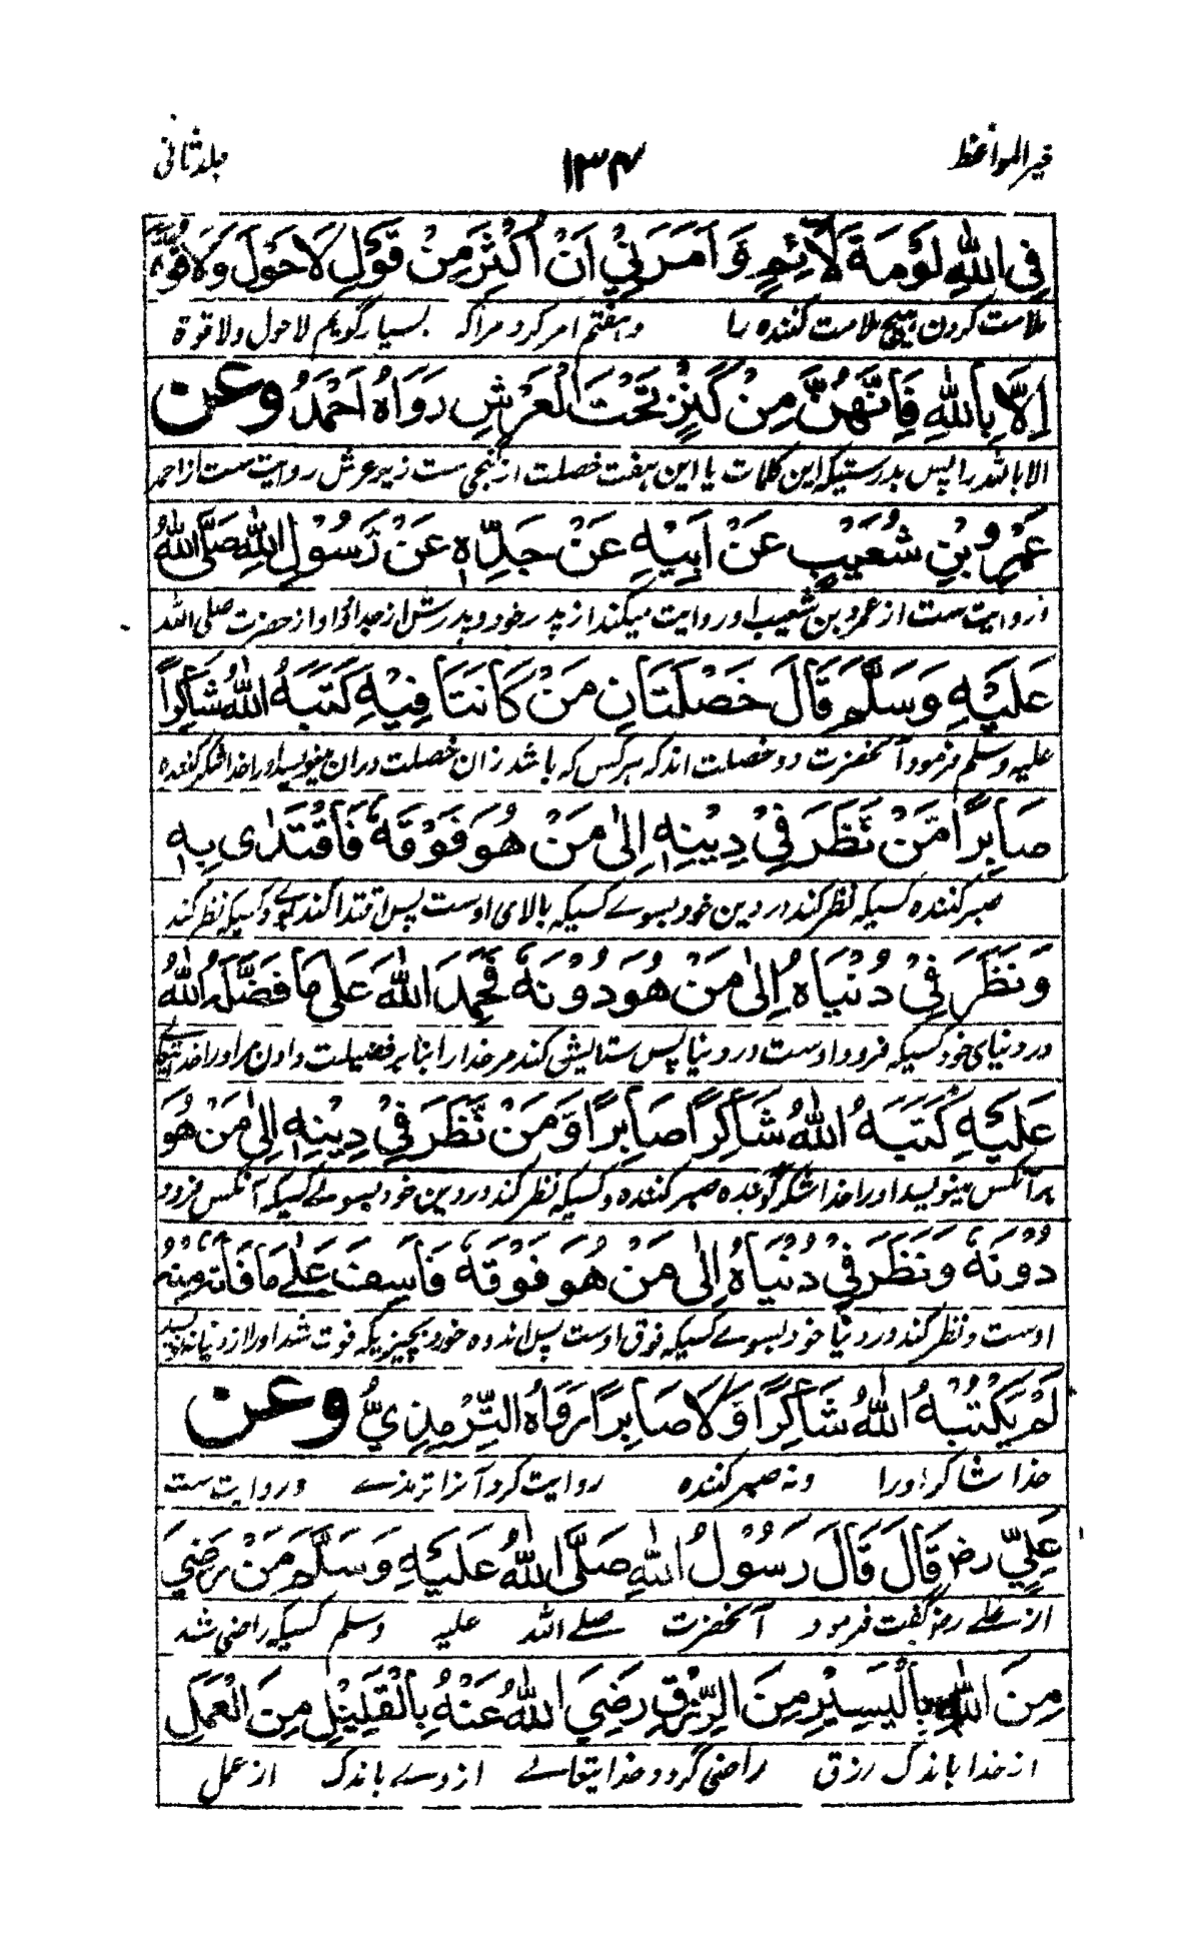 خیر المواعظ ۱۳۴ جلد ثانی
فِی اللّٰهِ لَوْمَةَ لَآئِمٍ وَاَمَرَنِیْ اَنْ اُکْثِرَ مِنْ قَوْلِ لَا حَوْلَ وَلَا قُوَّةَ
ملامت کردن هیچ ملامت کننده را وہفتم امر کرد مرا که بسیار گویم لا حول ولا قوة
اِلَّا بِاللّٰهِ فَاِنَّهُنَّ مِنْ کَنْزٍ تَحْتَ الْعَرْشِ رَوَاهُ اَحْمَدُ وعن
الا بالله را پس بدرستیکه این کلمات یا این ہفت خصلت از گنجی ست زیر عرش روایت ست از احمد
عَمْرِو بْنِ شُعَیْبٍ عَنْ اَبِیْهِ عَنْ جَدِّهٖ عَنْ رَسُوْلِ اللّٰهِ صَلَّی اللّٰهُ
و روایت ست از عمرو بن شعیب او روایت میکند از پدر خود و پدرش از جد او از حضرت صلی الله
عَلَیْهِ وَسَلَّمَ قَالَ خَصْلَتَانِ مَنْ کَانَتَا فِیْهِ کَتَبَهُ اللّٰهُ شَاکِرًا
علیه وسلم فرمود آنحضرت دو خصلت اند که ہر کس که باشد آن خصلت دران مینویسد او را خدا شکر کننده
صَابِرًا مَّنْ نَّظَرَ فِیْ دِیْنِهٖ اِلٰی مَنْ هُوَ فَوْقَهٗ فَاقْتَدٰی بِهٖ
صبر کننده کسیکه نظر کند در دین خود بسوے کسیکه بالای اوست پس اقتدا کند بوے و کسیکه نظر کند
وَنَظَرَ فِیْ دُنْیَاهُ اِلٰی مَنْ هُوَ دُوْنَهٗ فَحَمِدَ اللّٰهَ عَلٰی مَا فَضَّلَهُ اللّٰهُ
در دنیای خود کسیکه فرود اوست در دنیا پس ستایش کند مر خدا را بنابر فضیلت دادن مر او را خدا
عَلَیْهِ کَتَبَهُ اللّٰهُ شَاکِرًا صَابِرًا وَّمَنْ نَّظَرَ فِیْ دِیْنِهٖ اِلٰی مَنْ هُوَ
برآنکس مینویسد او را خدا شکر گوینده صبر کننده و کسیکه نظر کند در دین خود بسوے کسیکه آنکس فرود
دُوْنَهٗ وَنَظَرَ فِیْ دُنْیَاهُ اِلٰی مَنْ هُوَ فَوْقَهٗ فَاَسِفَ عَلٰے مَا فَاتَهٗ مِنْهُ
اوست و نظر کند در دنیا خود بسوے کسیکه فوق اوست پس اندوه خورد بچیزیکه فوت شد او را از دنیا نه نویسد
لَمْ یَکْتُبْهُ اللّٰهُ شَاکِرًا وَّلَا صَابِرًا رَوَاهُ التِّرْمِذِیُّ وعن
خدا شاکر او را ونه صبر کننده روایت کرد آنرا ترمذے و روایت ست
عَلِیٍّ رض قَالَ قَالَ رَسُوْلُ اللّٰهِ صَلَّی اللّٰهُ عَلَیْهِ وَسَلَّمَ مَنْ رَضِیَ
از علے رض گفت فرمود آنحضرت صلے الله علیه وسلم کسیکه راضی شد
مِنَ اللّٰهِ بِالْیَسِیْرِ مِنَ الرِّزْقِ رَضِیَ اللّٰهُ عَنْهُ بِالْقَلِیْلِ مِنَ الْعَمَلِ
از خدا باندک رزق راضی گردد خدایتعالے از وے باندک از عمل